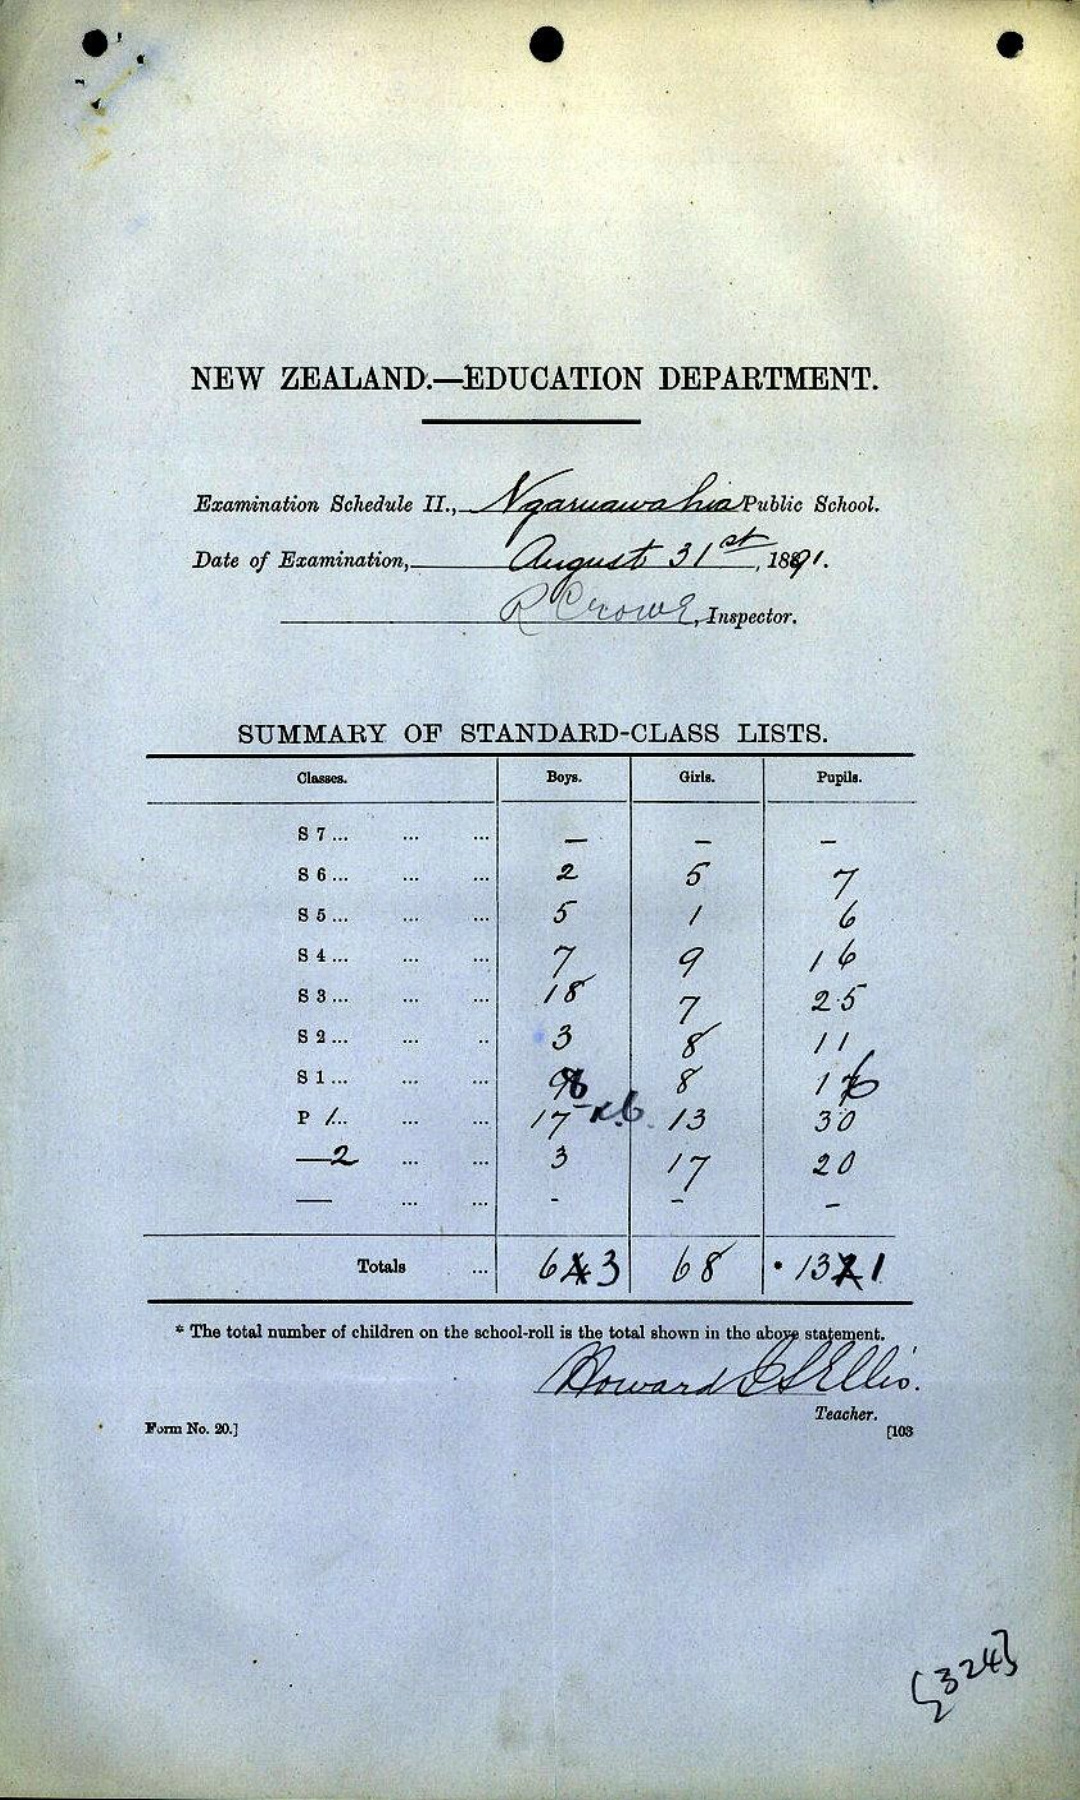 NEW ZEALAND.—EDUCATION DEPARTMENT.
Examination Schedule II., Ngaruawahia Public School.
Date of Examination, August 31st, 1891.
R Crowe, Inspector.
SUMMARY OF STANDARD-CLASS LISTS.
Classes. Boys. Girls. Pupils.
S 7 ... ... ... — — —
S 6 ... ... ... 2 5 7
S 5 ... ... ... 5 1 6
S 4 ... ... ... 7 9 16
S 3 ... ... ... 18 7 25
S 2 ... ... .. 3 8 11
S 1 ... ... ... 8 8 16
P 1... ... ... 17 13 30
—2 ... ... 3 17 20
— ... ... - - -
Totals ... 63 68 * 131
* The total number of children on the school-roll is the total shown in the above statement.
Howard Ellis.
Teacher.
Form No. 20.] [103
{324}